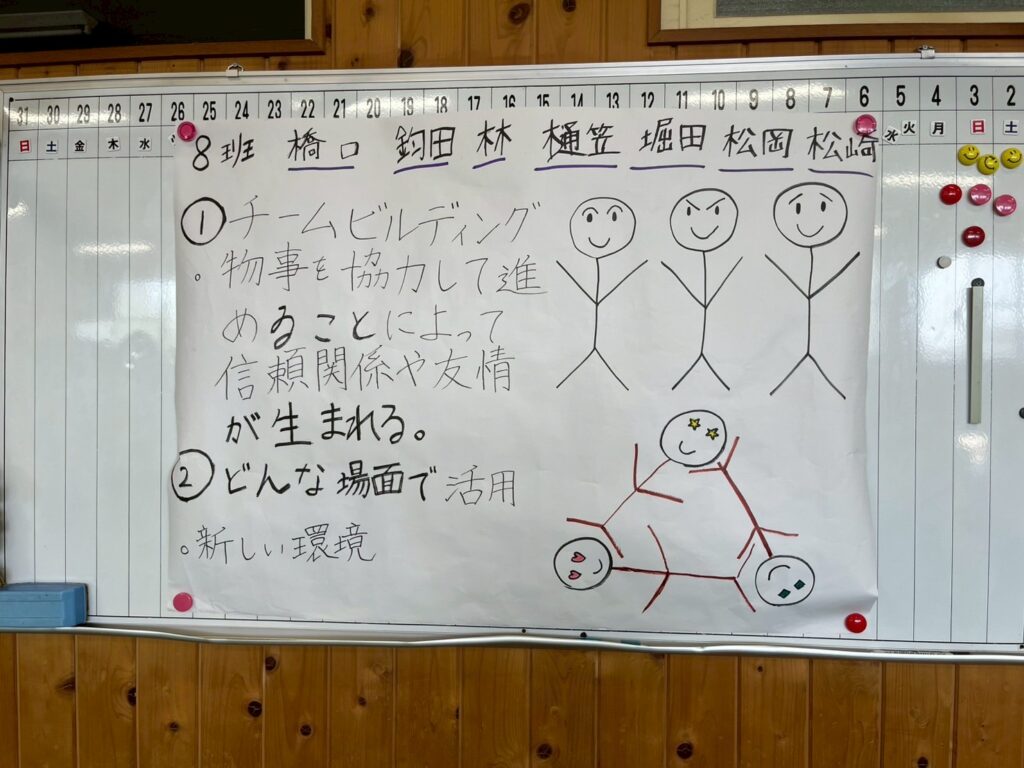 31 30 29 28 27 26 25 24 23 22 21 20 19 18 17 16 15 14 13 12 11 10 9 8 7 6 5 4 3 2
日 土 金 木 水 火 月 日 土
8班 橋口 鈞田 林 樋笠 堀田 松岡 松崎
① チームビルディング
。物事を協力して進
めることによって
信頼関係や友情
が生まれる。
② どんな場面で活用
。新しい環境